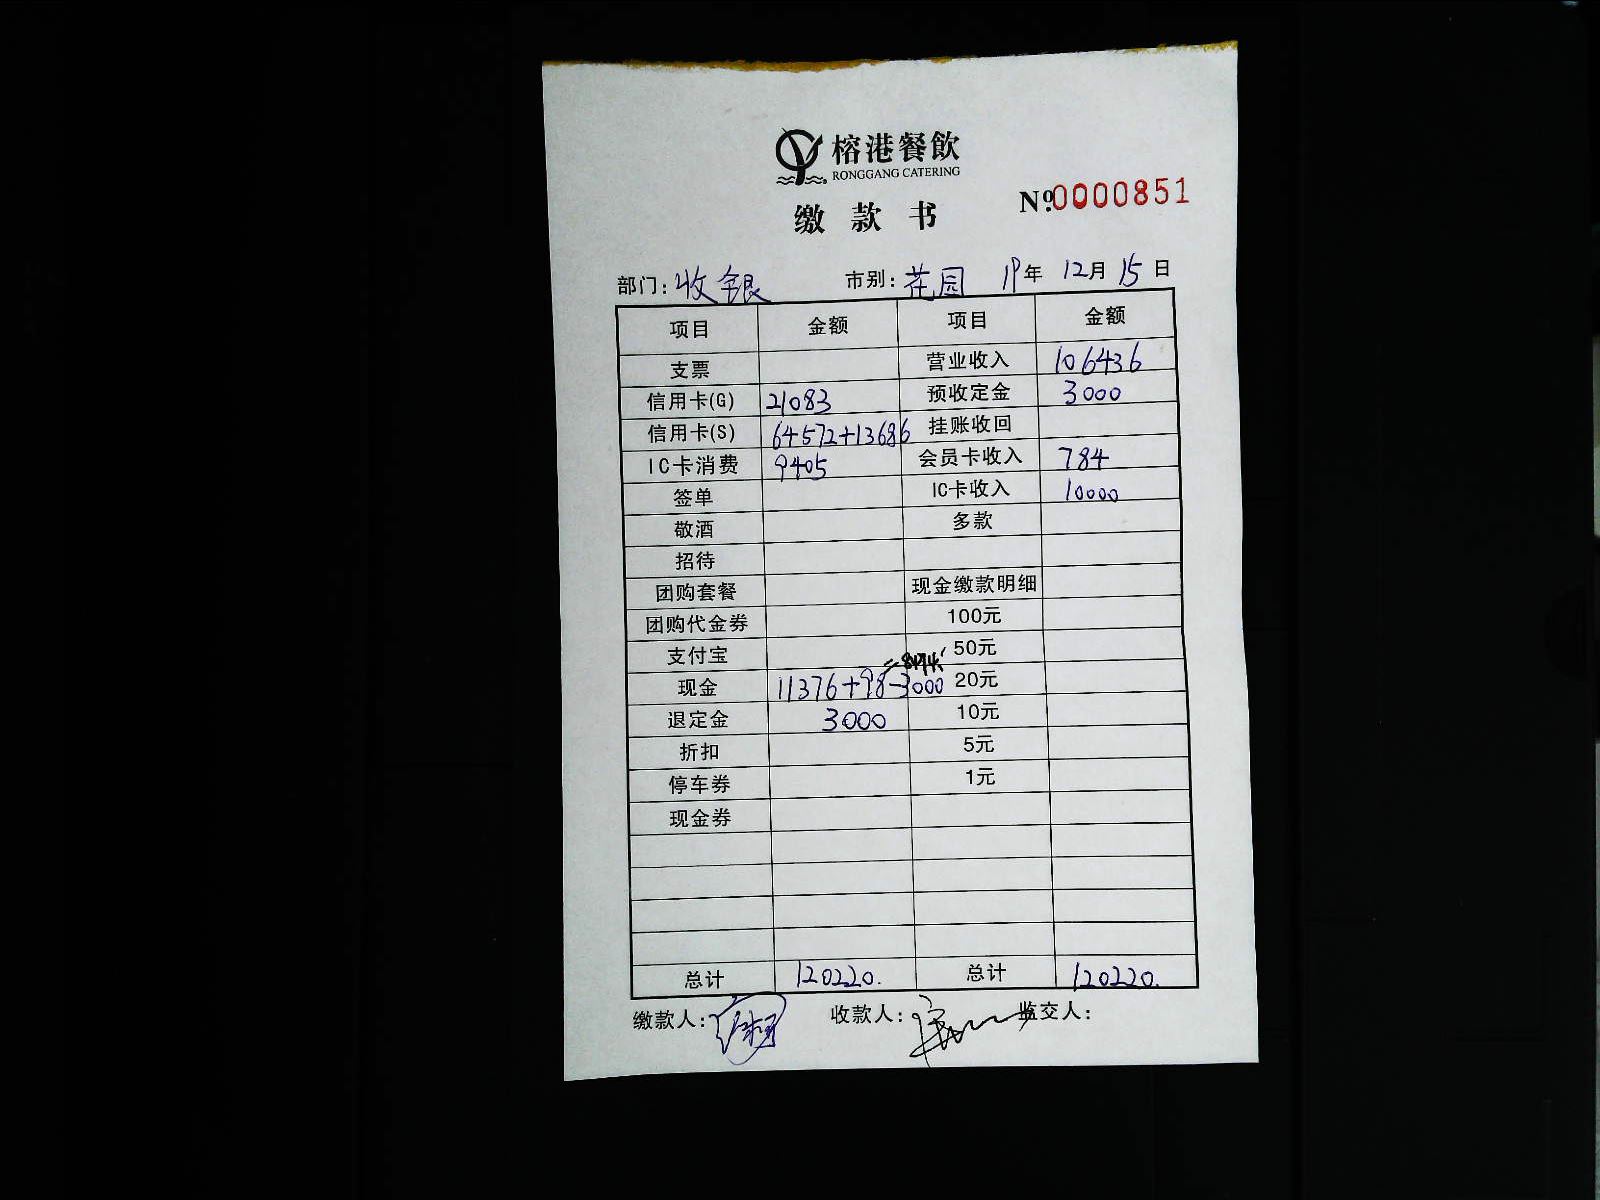 榕港餐飲
RONGGANG CATERING
缴款书 Nº 0000851
部门：收银 市别：花园 19年 12月 15日
项目 金额 项目 金额
支票 营业收入 106436
信用卡(G) 21083 预收定金 3000
信用卡(S) 64572+13686 挂账收回
IC卡消费 9405 会员卡收入 784
签单 IC卡收入 10000
敬酒 多款
招待
团购套餐 现金缴款明细
团购代金券 100元
支付宝 50元
=8474
现金 11376+98-3000 20元
退定金 3000 10元
折扣 5元
停车券 1元
现金券
总计 120220. 总计 120220.
缴款人： 收款人： 监交人：